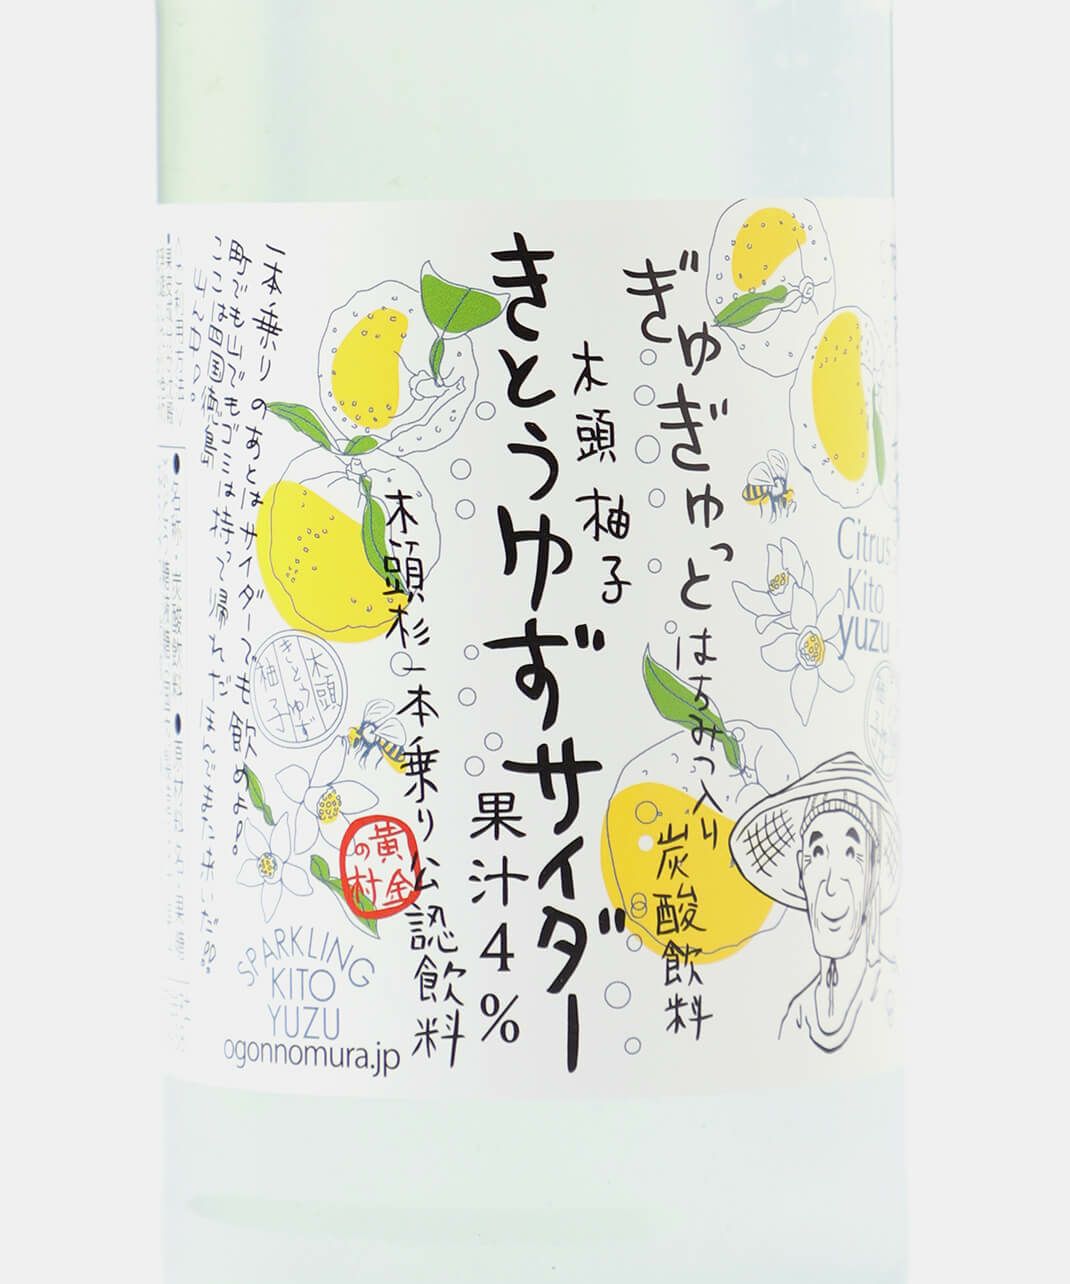 ぎゅぎゅっと
はちみつ入り
炭酸飲料
木頭柚子
きとうゆずサイダー
果汁4%
木頭杉一本乗り公認飲料
一本乗りのあとはサイダーでも飲めよ。
町でも山でもゴミは持って帰れだ
ここは四国徳島
山ん中。
Citrus
Kito
yuzu
木頭
きとうゆず
柚子
黄金
の村
SPARKLING
KITO
YUZU
ogonnomura.jp